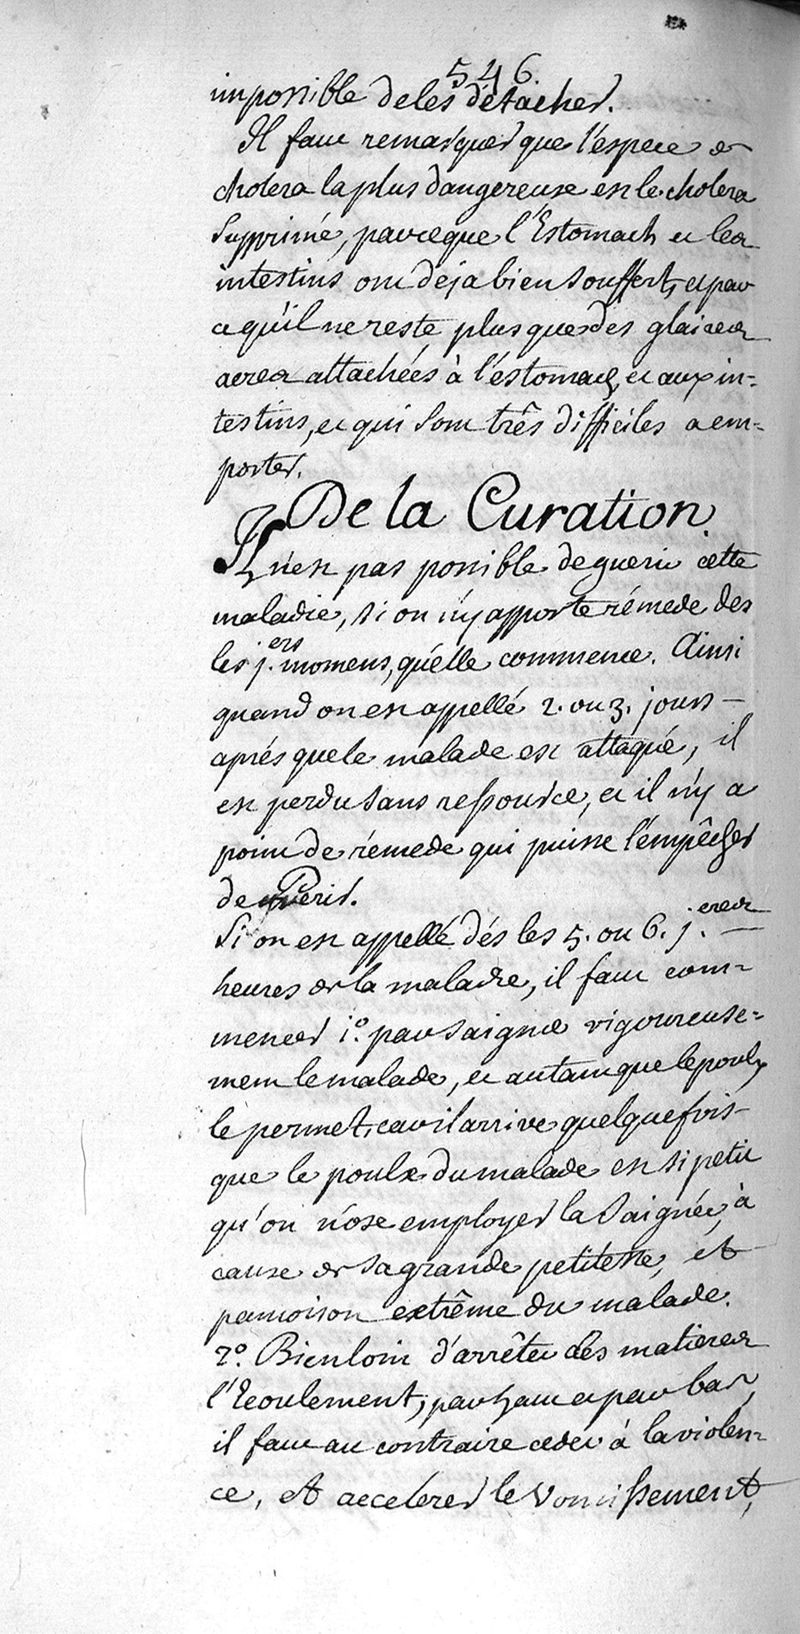 546.
impossible de les détacher.
Il faut remarquer que l'espece de
cholera la plus dangereuse est le cholera
Supprimé, parceque l'Estomach et les
intestins ont deja bien souffert, et par
ce qu'il ne reste plus que des glaires
acres attachées à l'éstomac, et aux in-
testins, et qui sont très difficiles a em-
porter.
De la Curation.
Il n'est pas possible de guerir cette
maladie, si on n'y apporte rémede des
les p.ers momens, qu'elle commence. Ainsi
quand on est appellé 2. ou 3. jours
aprés que le malade est attaqué, il
est perdu sans ressource, et il n'y a
point de rémede qui puisse l'empêcher
de Perir.
Si on est appellé dés les 5. ou 6. p.eres
heures de la maladie, il faut com-
mencer 1.° par saigner vigoureuse-
ment le malade, et autant que le poulx
le permet, car il arrive quelquefois
que le poulx du malade est si petit
qu'on n'ose employer la saignée, à
cause de sa grande petitesse, et
pamoison extrême du malade.
2.° Bien loin d'arrêter des matieres
l'Ecoulement, par haut et par bas,
il faut au contraire ceder à la violen-
ce, et accelerer le vomissement,